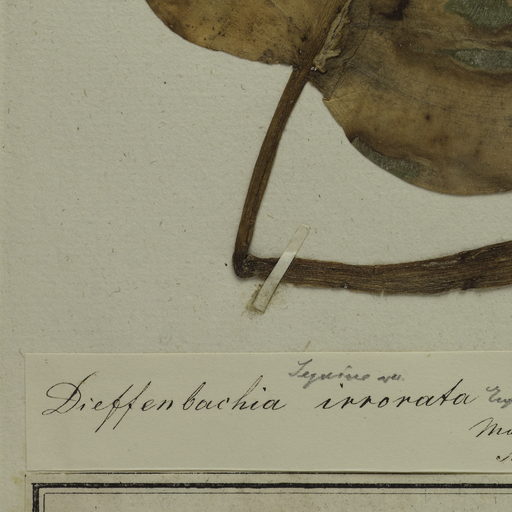 Seguine var.
Dieffenbachia irrorata